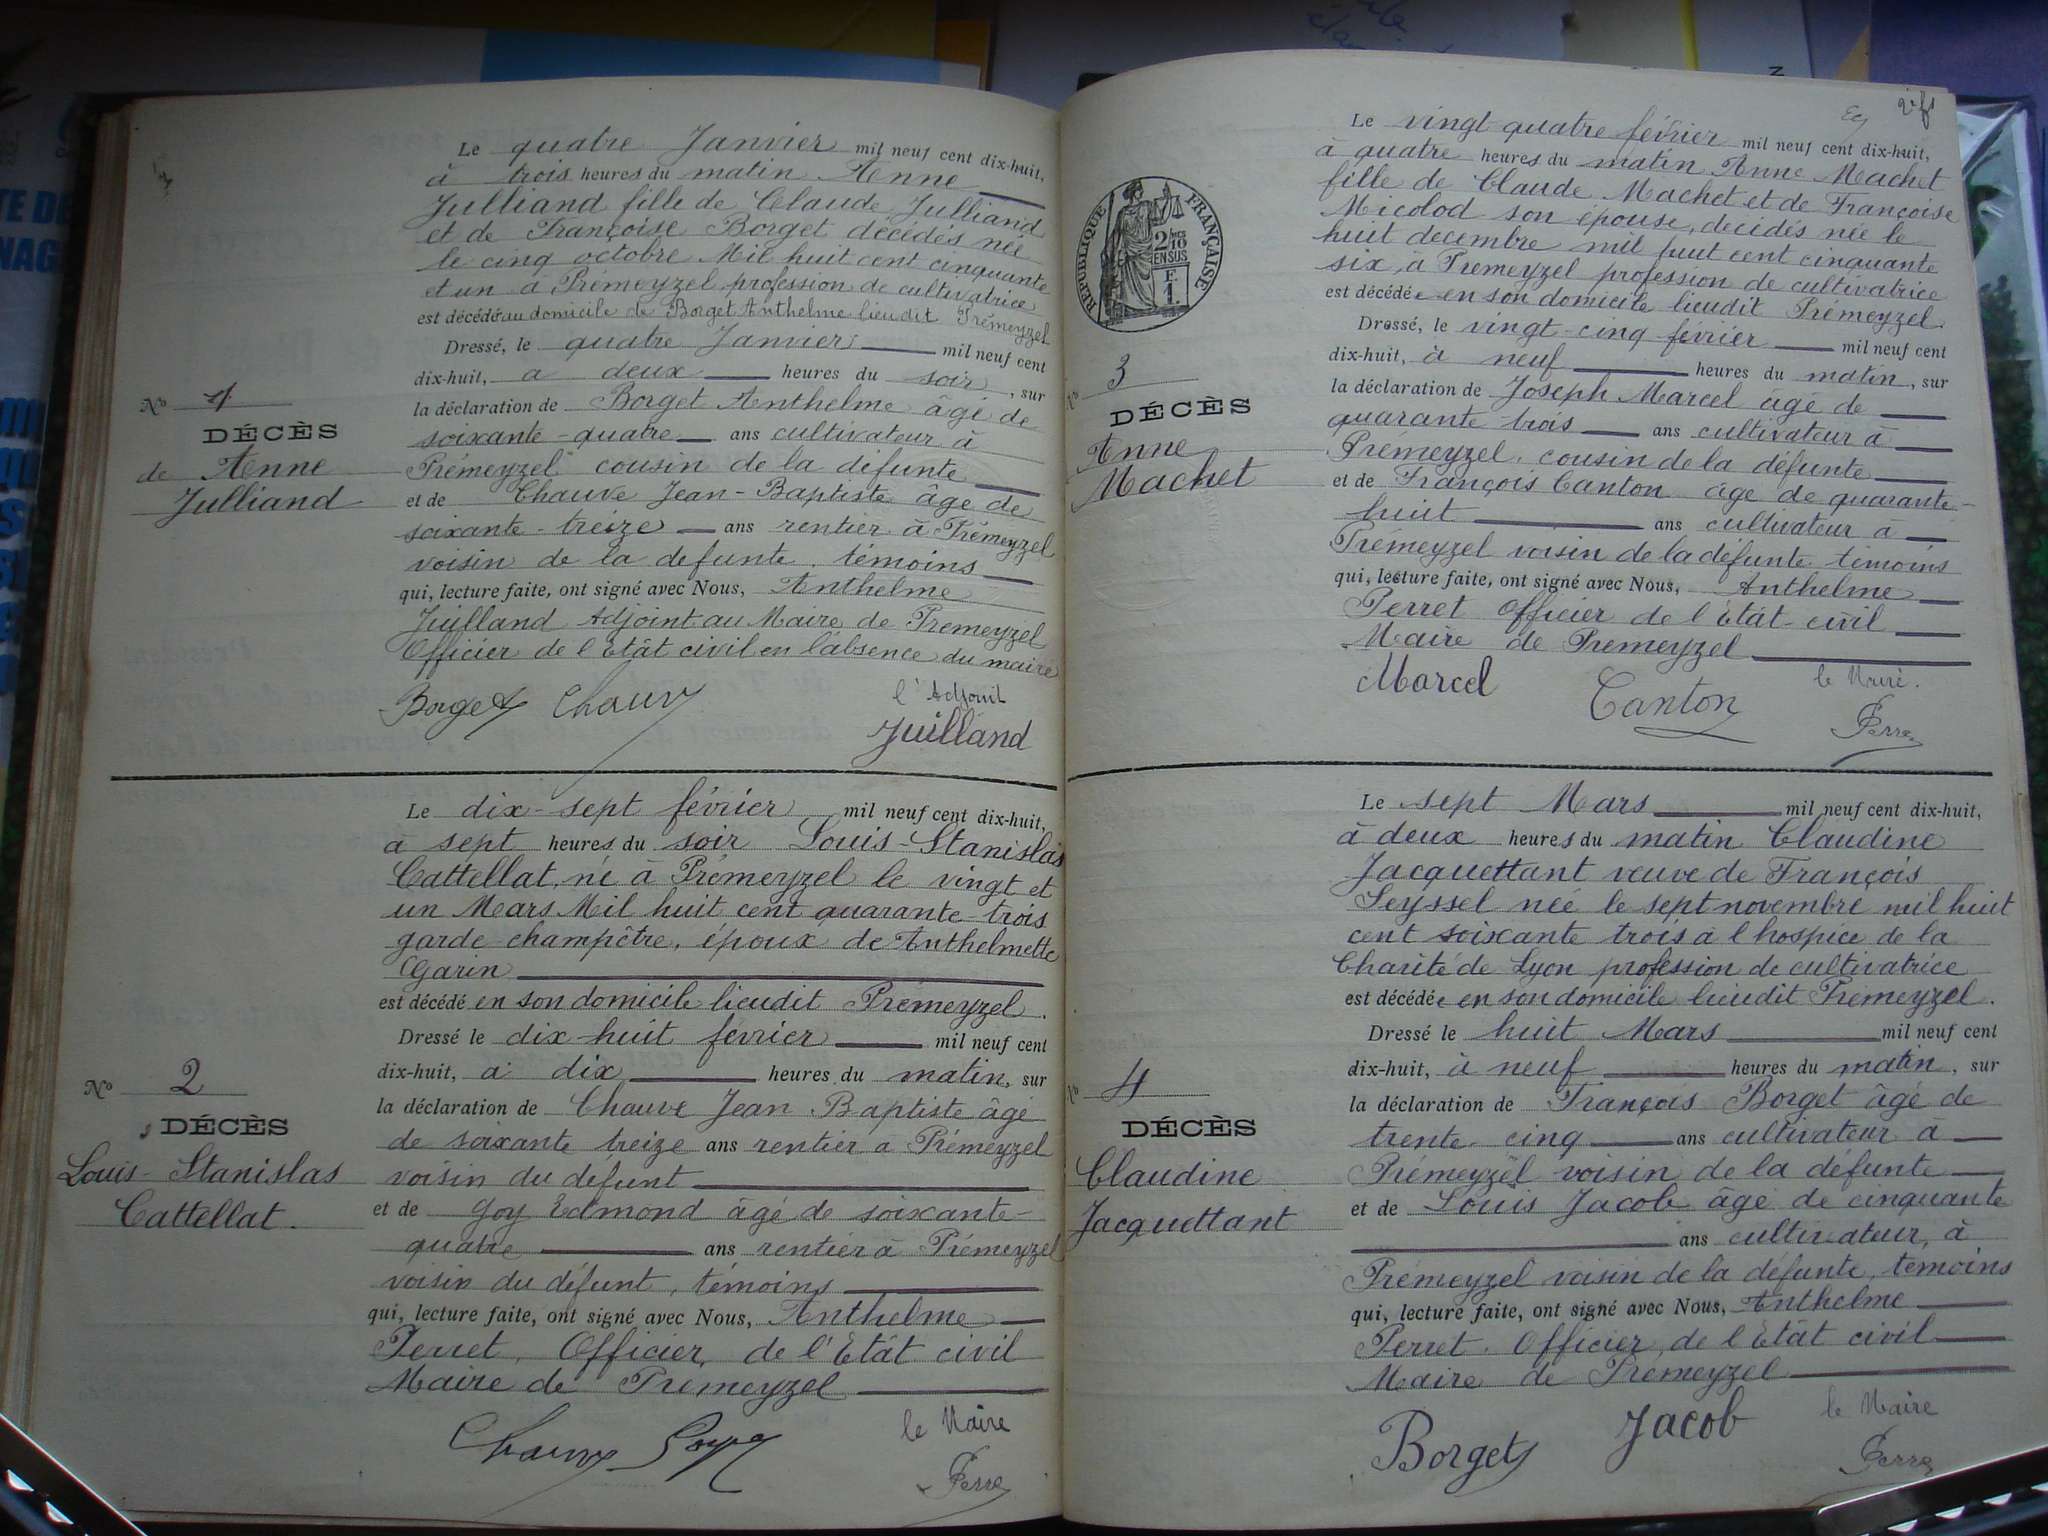 Le quatre Janvier mil neuf cent dix-huit,
à trois heures du matin Anne
Julliand fille de Claude Julliand
et de Françoise Borget décédés née
le cinq octobre Mil huit cent cinquante
et un à Prémeyzel profession de cultivatrice
est décédée au domicile de Borget Anthelme lieudit Prémeyzel
Dressé, le quatre Janvier mil neuf cent
dix-huit, a deux heures du soir, sur
la déclaration de Borget Anthelme âgé de
soixante-quatre ans cultivateur à
Prémeyzel cousin de la défunte
et de Chauve Jean-Baptiste âge de
soixante-treize ans rentier à Prémeyzel
voisin de la defunte, témoins
qui, lecture faite, ont signé avec Nous, Anthelme
Juilland Adjoint au Maire de Premeyzel
Officier de l'Etât civil en l'absence du maire
Borget Chauve l'Adjoint
Juilland
No 1
DÉCÈS
de Anne
Julliand
Le dix-sept février mil neuf cent dix-huit,
à sept heures du soir Louis-Stanislas
Cattellat, né à Prémeyzel le vingt et
un Mars Mil huit cent quarante-trois
garde-champêtre, époux de Anthelmette
Garin
est décédé en son domicile lieudit Prémeyzel.
Dressé le dix-huit février mil neuf cent
dix-huit, à dix heures du matin, sur
la déclaration de Chauve Jean Baptiste âgé
de soixante treize ans rentier a Prémeyzel
voisin du défunt
et de Goy Edmond âgé de soixante-
quatre ans rentier à Prémeyzel
voisin du défunt, témoins
qui, lecture faite, ont signé avec Nous, Anthelme
Perret, Officier, de l'Etât civil
Maire de Premeyzel
Chauve Goy le Maire
Perret
No 2
DÉCÈS
Louis-Stanislas
Cattellat.
Le vingt quatre février mil neuf cent dix-huit,
à quatre heures du matin Anne Machet
fille de Claude Machet et de Françoise
Micolod son épouse, décidés née le
huit decembre mil huit cent cinquante
six, à Premeyzel profession de cultivatrice
est décédée en son domicile lieudit Prémeyzel.
Dressé, le vingt-cinq février mil neuf cent
dix-huit, à neuf heures du matin, sur
la déclaration de Joseph Marcel agé de
quarante trois ans cultivateur à
Prémeyzel, cousin de la défunte
et de François Canton âge de quarante-
huit ans cultivateur a
Prémeyzel voisin de la défunte témoins
qui, lecture faite, ont signé avec Nous, Anthelme
Perret Officier de l'Etât-civil
Maire de Premeyzel
Marcel Canton le Maire.
Perret
RÉPUBLIQUE FRANÇAISE
2/10 MES
EN SUS
F.
1.
No 3
DÉCÈS
Anne
Machet
Le sept Mars mil neuf cent dix-huit,
à deux heures du matin Claudine
Jacquettant veuve de François
Seyssel née le sept novembre mil huit
cent soixante trois à l'hospice de la
Charité de Lyon profession de cultivatrice
est décédée en son domicile lieudit Prémeyzel.
Dressé le huit Mars mil neuf cent
dix-huit, à neuf heures du matin, sur
la déclaration de François Borget âgé de
trente-cinq ans cultivateur à
Prémeyzel voisin de la défunte
et de Louis Jacob âgé de cinquante
ans cultivateur, à
Prémeyzel voisin de la défunte, témoins
qui, lecture faite, ont signé avec Nous, Anthelme
Perret, Officier, de l'Etât civil
Maire de Premeyzel
Borget Jacob le Maire
Perret
No 4
DÉCÈS
Claudine
Jacquettant